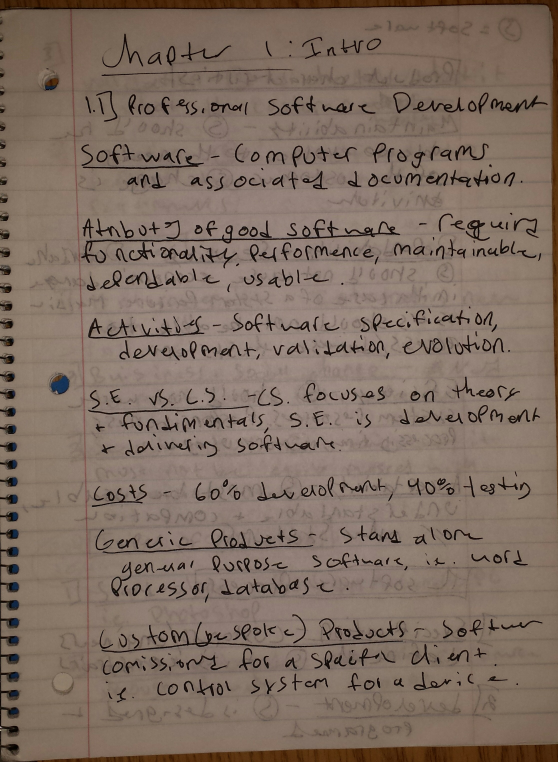 Chapter 1: Intro
1.1] Professional Software Development
Software - Computer Programs
and associated documentation.
Attributes of good software - required
functionality, performence, maintainable,
dependable, usable.
Activities - Software specification,
development, validation, evolution.
S.E. vs. C.S. - CS. focuses on theory
+ fundimentals, S.E. is development
+ delivering software.
Costs - 60% development, 40% testing
Generic Products - Stand alone
general purpose software, ie. word
processor, database.
Custom (bespoke) Products - Software
comissiond for a specific client.
ie. control system for a device.